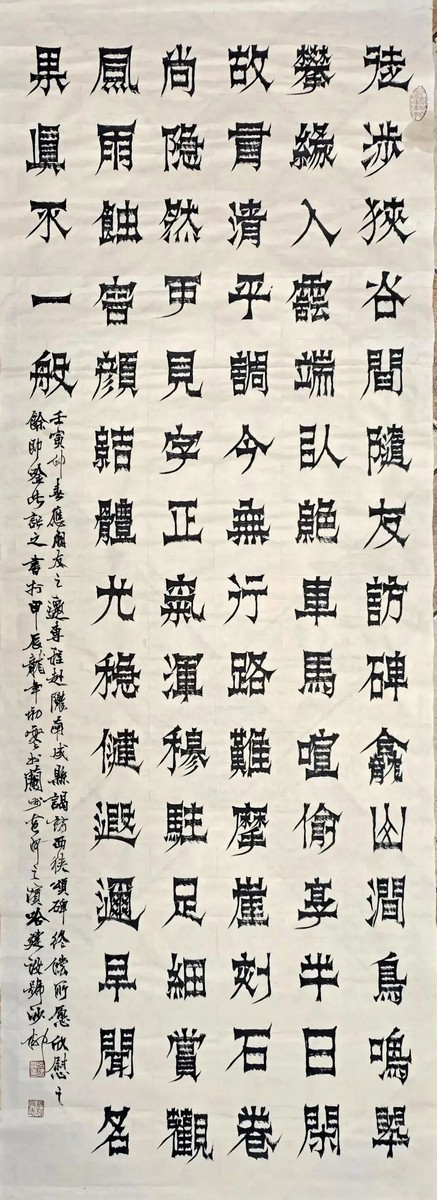 徒涉狹谷間隨友訪碑龕山澗鳥鳴翠
攀緣入雲端臥聽車馬喧偷享半日閑
故清平調今無行路難摩崖刻石卷
尚隐然可見字正氣渾穆駐足細賞觀
風雨蝕害顏結體尤穩健遐邇早聞名
果眞不一般
壬寅仲春應朋友之邀專程赴隴南成縣謁訪西狹頌碑終償所愿欣慰之
餘即此記之書於甲辰龍年初雪於蘭州黃河之濱哈建設號